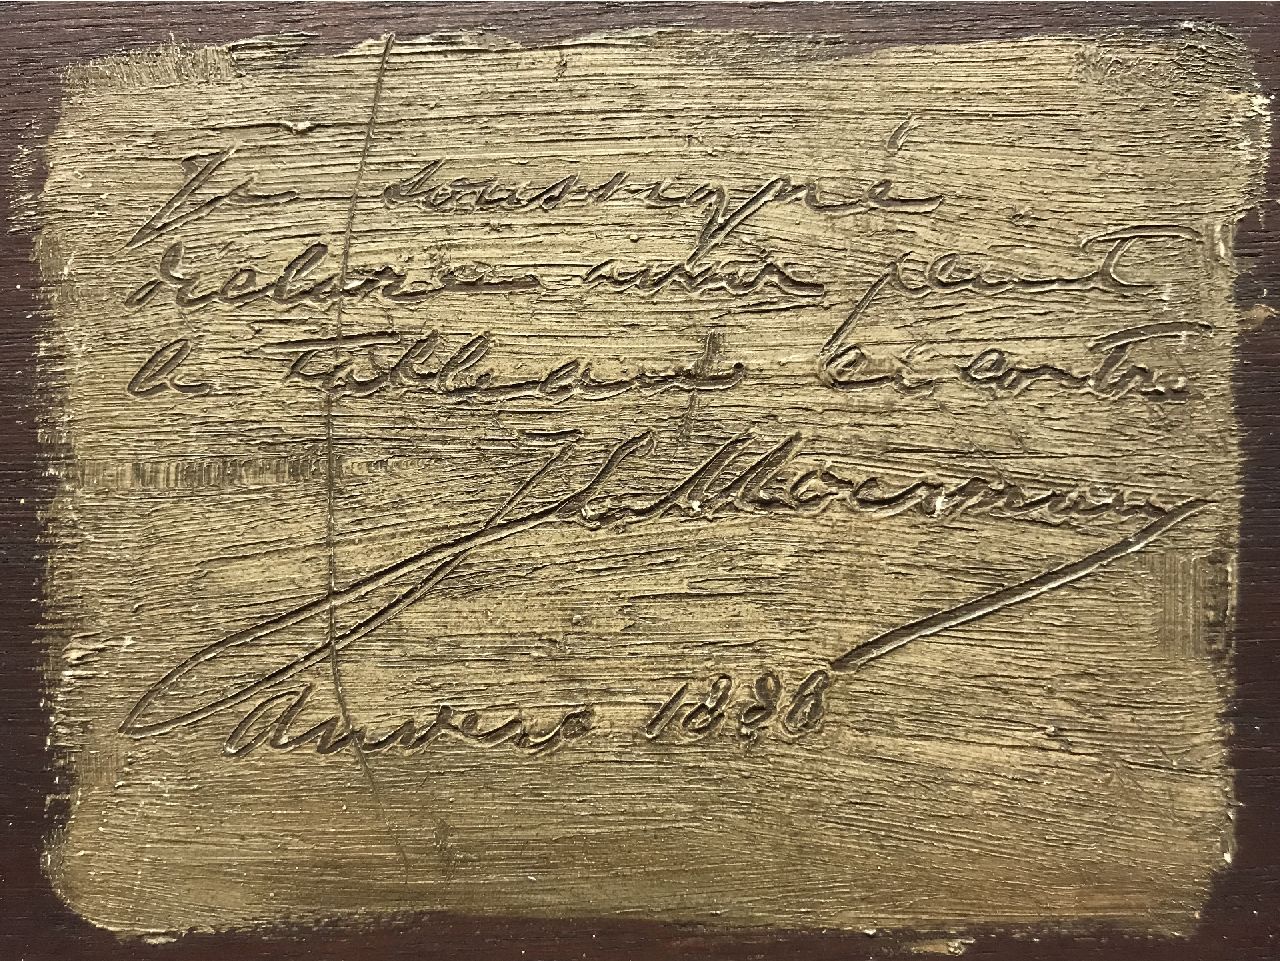 Je soussigné
déclare avoir peint
le tableau ci contre
JL Moerman
Anvers 1886